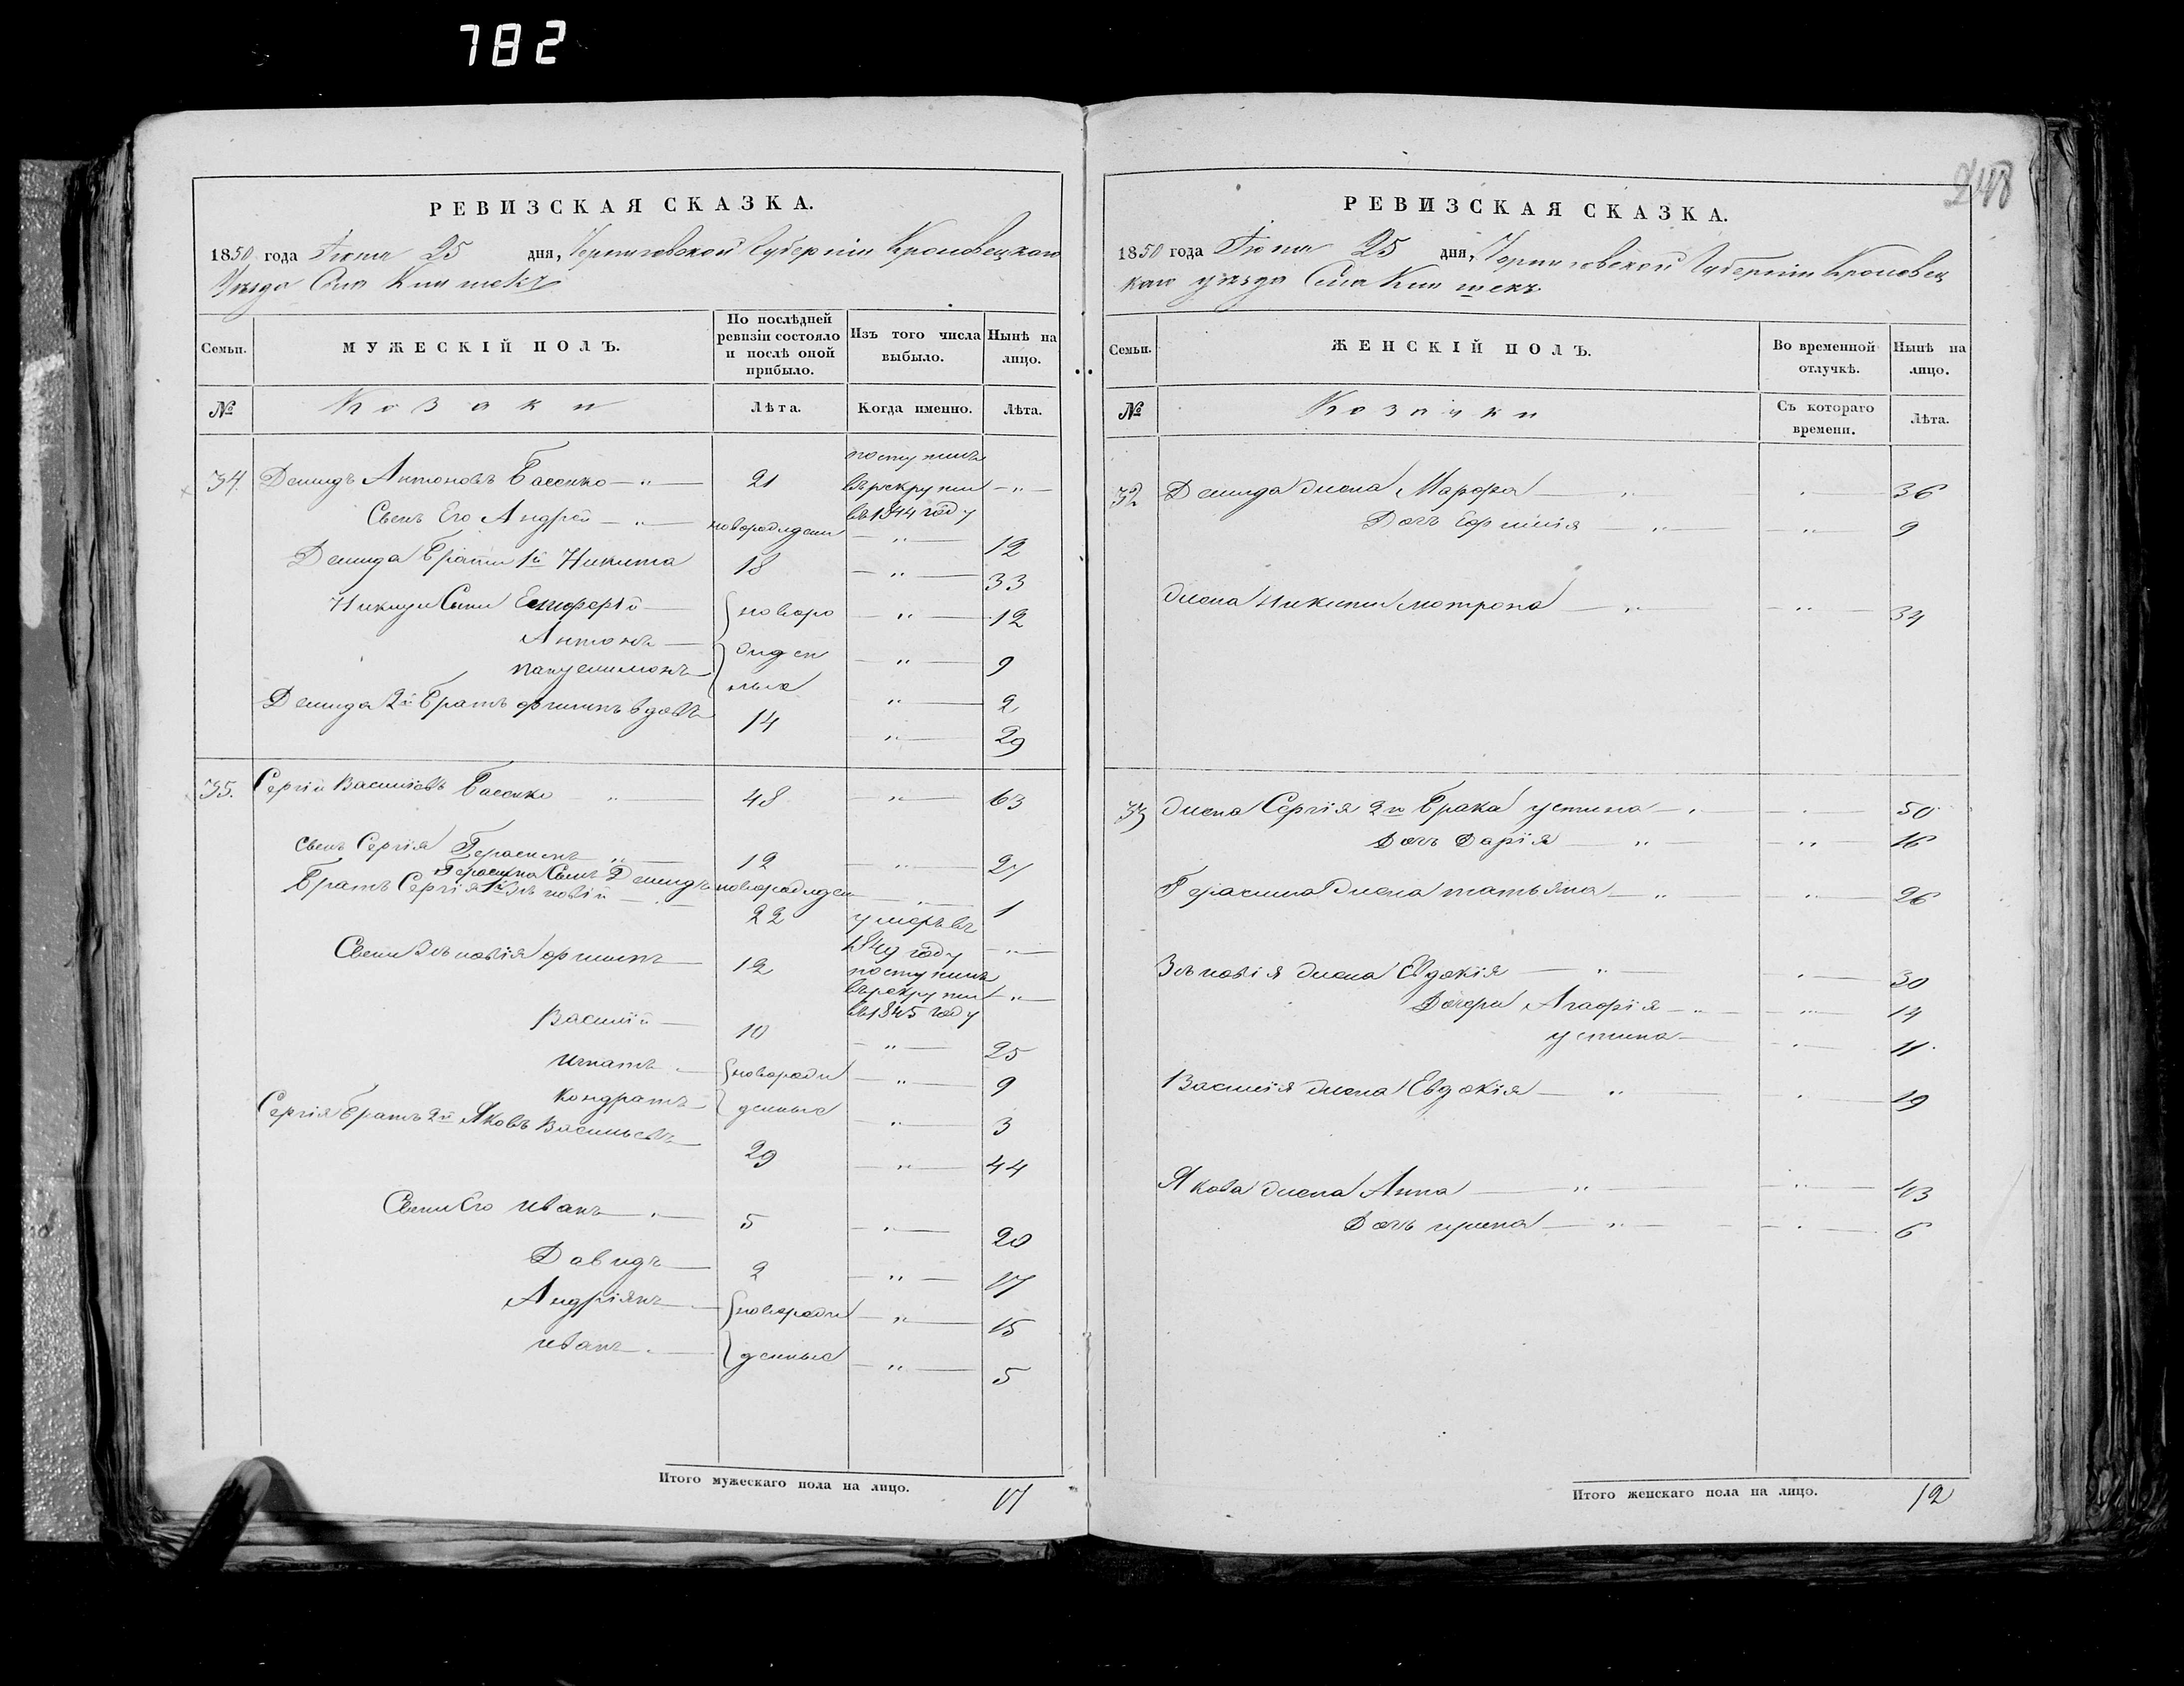 782
248
РЕВИЗСКАЯ СКАЗКА.
1850 года Іюня 25 дня, Черниговской Губерніи Кролевецкого
Уезда Села
Семьи.
МУЖЕСКІЙ ПОЛЪ.
По послѣдней ревизіи состояло и послѣ оной прибыло.
Изъ того числа выбыло.
Нынѣ на лицо.
№
Козаки
Лѣта.
Когда именно.
Лѣта.
34. Демидъ Антоновъ Басенко — „ — 21 поступилъ в рекруты в 1844 году — „ —
Сынъ Его Андрей — „ — новорожден — „ — 12
Демида Братъ 1й Никита 18 — „ — 33
Никиты Сыны Елиферій — новоро — „ — 12
Антонъ — жден — „ — 9
Пантелимонъ ные „ — 2
Демида 2й Братъ филипъ вдовъ 14 — „ — 29
35. Сергій Василіевъ Басенко „ — 48 — „ — 63
Сынъ Сергія Герасимъ „ — 12 — „ — 27
Герасима Сынъ Демидъ новорожден — „ — 1
Братъ Сергія 1й Зѣновій — „ — 22 умеръ въ 1849 году — „ —
Сыны Зѣновія филипъ — 12 поступилъ в рекруты в 1845 году — „ —
Василій — 10 — „ — 25
Игнатъ — новорож — „ — 9
Кондратъ — денные — „ — 3
Сергія Братъ 2й Яковъ Васильевъ — 29 — „ — 44
Сыны Его Иванъ — „ — 5 — „ — 20
Давидъ — 2 — „ — 17
Андріянъ — новорож — „ — 15
Иванъ — денные — „ — 5
Итого мужескаго пола на лицо. 17
РЕВИЗСКАЯ СКАЗКА.
1850 года Іюня 25 дня, Черниговской Губерніи Кролевец
кого уезда Села
Семьи.
ЖЕНСКІЙ ПОЛЪ.
Во временной отлучкѣ.
Нынѣ на лицо.
№
Козачки
Съ котораго времени.
Лѣта.
32 Демида жена Марфа — „ — 36
Дочь Ефимія — „ — „ — 9
жена Никиты мотрона — „ — „ — 34
33 жена Сергія 2го Брака устина — „ — 50
Дочь Дарія — „ — „ 16
Герасима жена татьяна — „ — „ — 26
Зѣновія жена Евдокія — „ — „ — 30
Дочери Агафія — „ — „ — 14
устина — „ — 11
Василія жена Евдокія — „ — 19
Якова жена Анна — „ — „ — 43
Дочь ирина — „ — „ — 6
Итого женскаго пола на лицо. 12